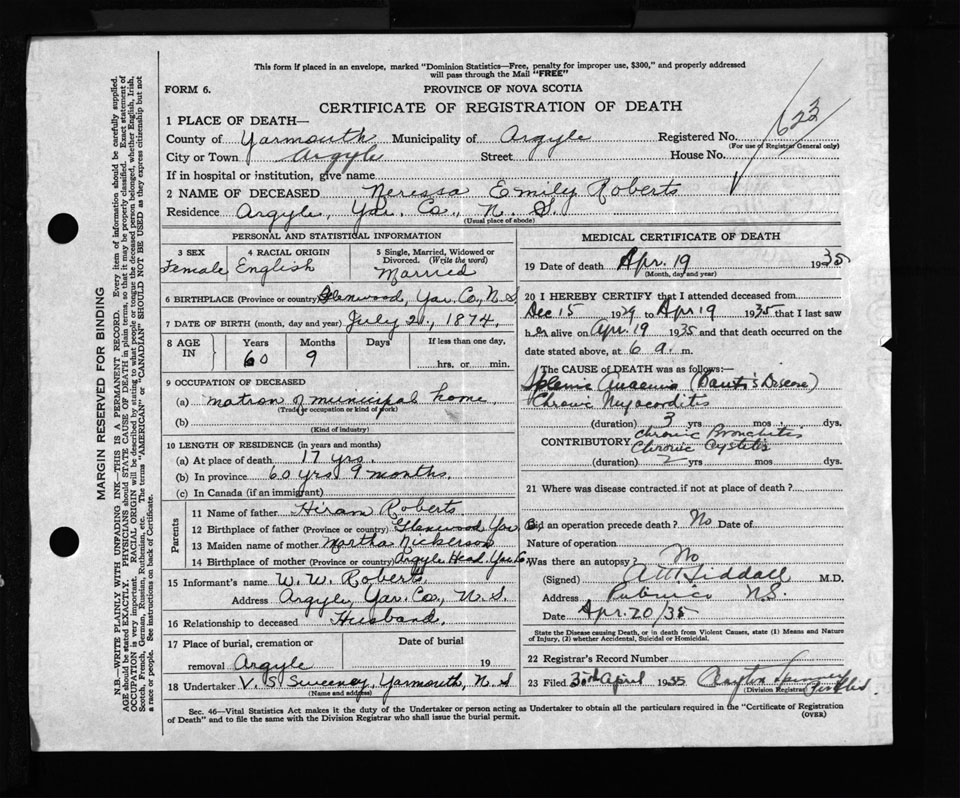 This form if placed in an envelope, marked "Dominion Statistics—Free, penalty for improper use, $300," and properly addressed
will pass through the Mail "FREE"
FORM 6. PROVINCE OF NOVA SCOTIA
CERTIFICATE OF REGISTRATION OF DEATH
1 PLACE OF DEATH—
County of Yarmouth Municipality of Argyle Registered No. 623
(For use of Registrar General only)
City or Town Argyle Street House No.
If in hospital or institution, give name
2 NAME OF DECEASED Neressa Emily Roberts
Residence Argyle, Yar. Co., N. S.
(Usual place of abode)
PERSONAL AND STATISTICAL INFORMATION
3 SEX 4 RACIAL ORIGIN 5 Single, Married, Widowed or
Divorced. (Write the word)
Female English Married
6 BIRTHPLACE (Province or country) Glenwood, Yar. Co., N. S.
7 DATE OF BIRTH (month, day and year) July 21, 1874.
8 AGE IN Years Months Days If less than one day,
60 9 hrs. or min.
9 OCCUPATION OF DECEASED
(a) matron of municipal home
(Trade or occupation or kind of work)
(b)
(Kind of industry)
10 LENGTH OF RESIDENCE (in years and months)
(a) At place of death 17 yrs.
(b) In province 60 yrs 9 months.
(c) In Canada (if an immigrant)
Parents
11 Name of father Hiram Roberts
12 Birthplace of father (Province or country) Glenwood Yar. Co.
13 Maiden name of mother Martha Nickerson
14 Birthplace of mother (Province or country) Argyle Head Yar. Co.
15 Informant's name W. W. Roberts.
Address Argyle, Yar. Co., N. S.
16 Relationship to deceased Husband.
17 Place of burial, cremation or Date of burial
removal Argyle 19
18 Undertaker V. S. Sweeney, Yarmouth, N. S
(Name and address)
MEDICAL CERTIFICATE OF DEATH
19 Date of death Apr. 19 1935
(Month, day and year)
20 I HEREBY CERTIFY that I attended deceased from
Dec 15 1929 to Apr 19 1935 that I last saw
her alive on Apr. 19 1935 and that death occurred on the
date stated above, at 6 a. m.
The CAUSE OF DEATH was as follows:—
Splenic Anaemia (Banti's Disease)
Chronic Myocarditis
(duration) 3 yrs mos. dys.
CONTRIBUTORY Chronic Bronchitis
Chronic Cystitis
(duration) 2 yrs mos dys.
21 Where was disease contracted if not at place of death?
Did an operation precede death? No Date of
Nature of operation
Was there an autopsy? No
(Signed) Siddall M.D.
Address Pubnico N.S.
Date Apr. 20/35
State the Disease causing Death, or in death from Violent Causes, state (1) Means and Nature
of Injury, (2) whether Accidental, Suicidal or Homicidal.
22 Registrar's Record Number
23 Filed April 1935
(Division Registrar)
Sec. 46—Vital Statistics Act makes it the duty of the Undertaker or person acting as Undertaker to obtain all the particulars required in the "Certificate of Registration
of Death" and to file the same with the Division Registrar who shall issue the burial permit. (OVER)
MARGIN RESERVED FOR BINDING
N.B.—WRITE PLAINLY WITH UNFADING INK—THIS IS A PERMANENT RECORD. Every item of information should be carefully supplied.
AGE should be stated EXACTLY. PHYSICIANS should STATE CAUSE OF DEATH in plain terms, so that it may be properly classified. Exact statement of
OCCUPATION is very important. RACIAL ORIGIN will be described by stating to what people or tongue the deceased person belonged, whether English, Irish,
Scotch, French, German, Russian, Ruthenian, etc. The terms "AMERICAN" or "CANADIAN" SHOULD NOT BE USED as they express citizenship but not
a race or people. See instructions on back of Certificate.